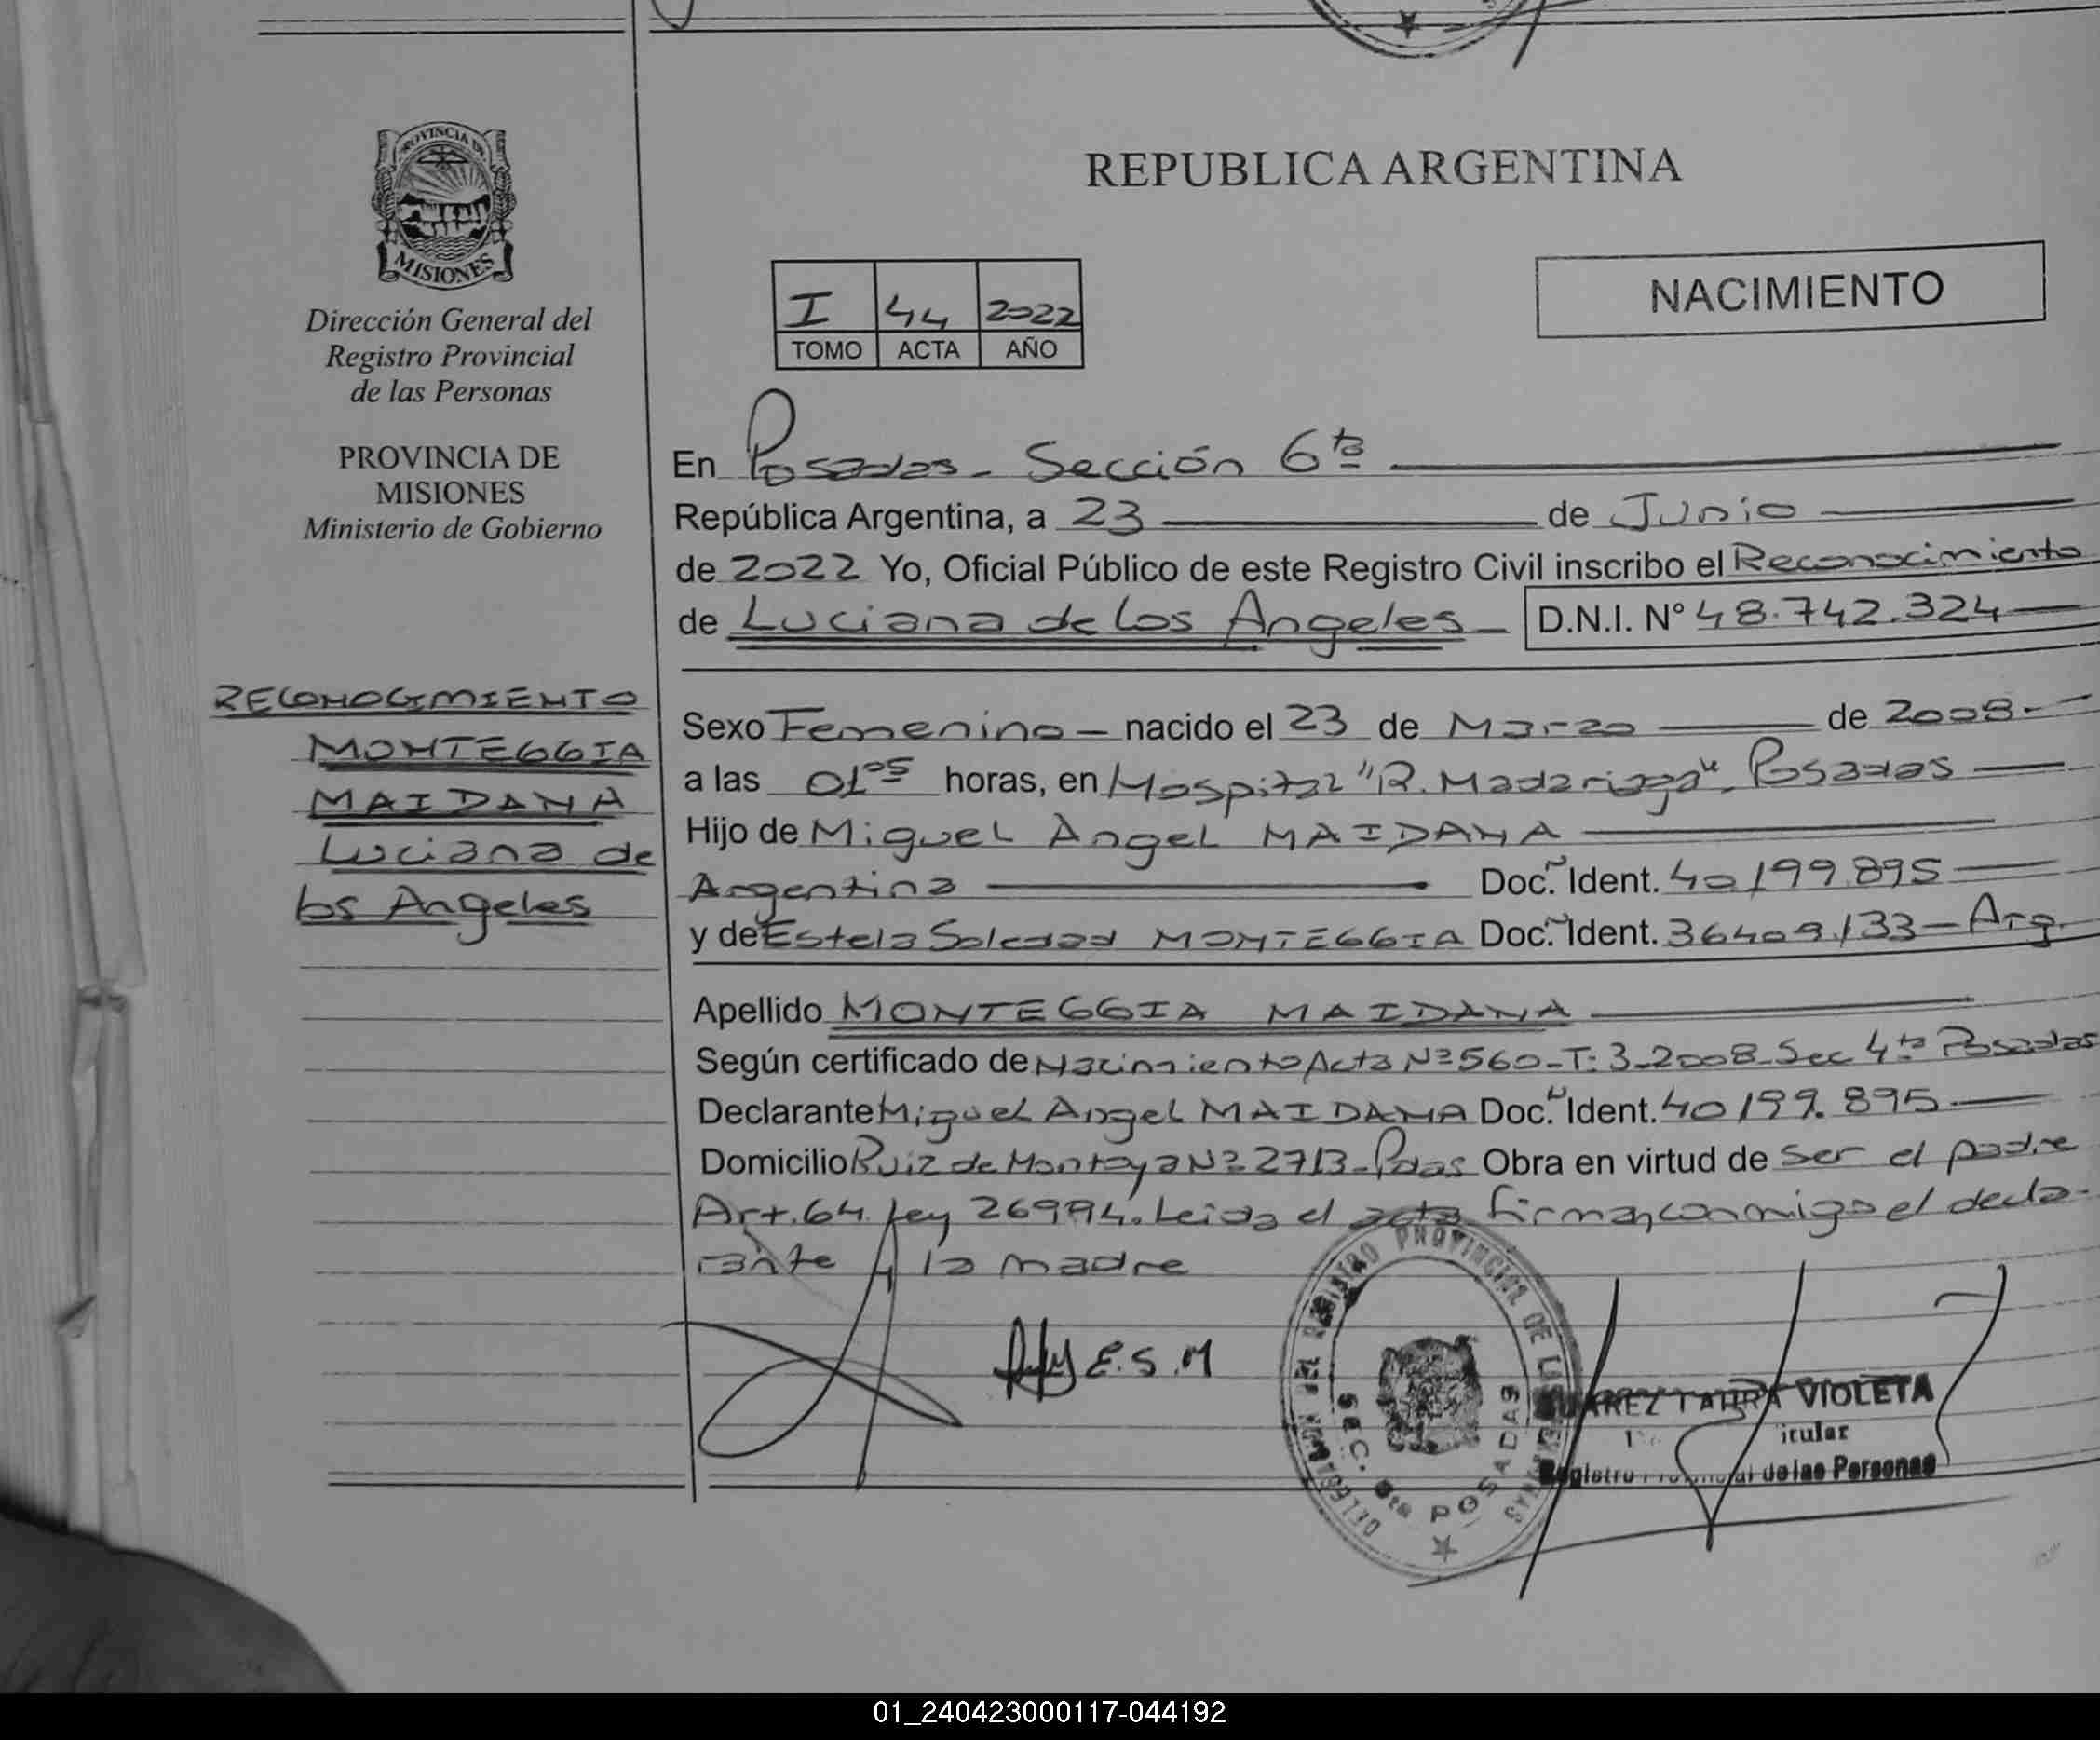 PROVINCIA DE
MISIONES
Dirección General del
Registro Provincial
de las Personas
PROVINCIA DE
MISIONES
Ministerio de Gobierno
RECONOCIMIENTO
MONTEGGIA
MAIDANA
Luciana de
los Angeles
REPUBLICA ARGENTINA
I 44 2022
TOMO ACTA AÑO
NACIMIENTO
En Posadas - Sección 6ta
República Argentina, a 23 de Junio
de 2022 Yo, Oficial Público de este Registro Civil inscribo el Reconocimiento
de Luciana de los Angeles - D.N.I. N° 48.742.324
Sexo Femenino - nacido el 23 de Marzo de 2008.-
a las 01:05 horas, en Hospital "R. Madariaga", Posadas
Hijo de Miguel Angel MAIDANA
Argentina Doc. Ident. 40.199.895
y de Estela Soledad MONTEGGIA Doc. Ident. 36.409.133 - Arg.
Apellido MONTEGGIA MAIDANA
Según certificado de Nacimiento Acta Nº 560 - T: 3 - 2008 - Sec 4ta Posadas
Declarante Miguel Angel MAIDANA Doc. Ident. 40.199.895
Domicilio Ruiz de Montoya Nº 2713 - Pdas Obra en virtud de ser el padre
Art. 64. Ley 26994. Leida el acta firman conmigo el decla-
rante y la madre
E.S.M
REGISTRO PROVINCIAL DE LAS PERSONAS
SEC. 6ta POSADAS
SUAREZ VIOLETA
Registro Provincial de las Personas
01_240423000117-044192